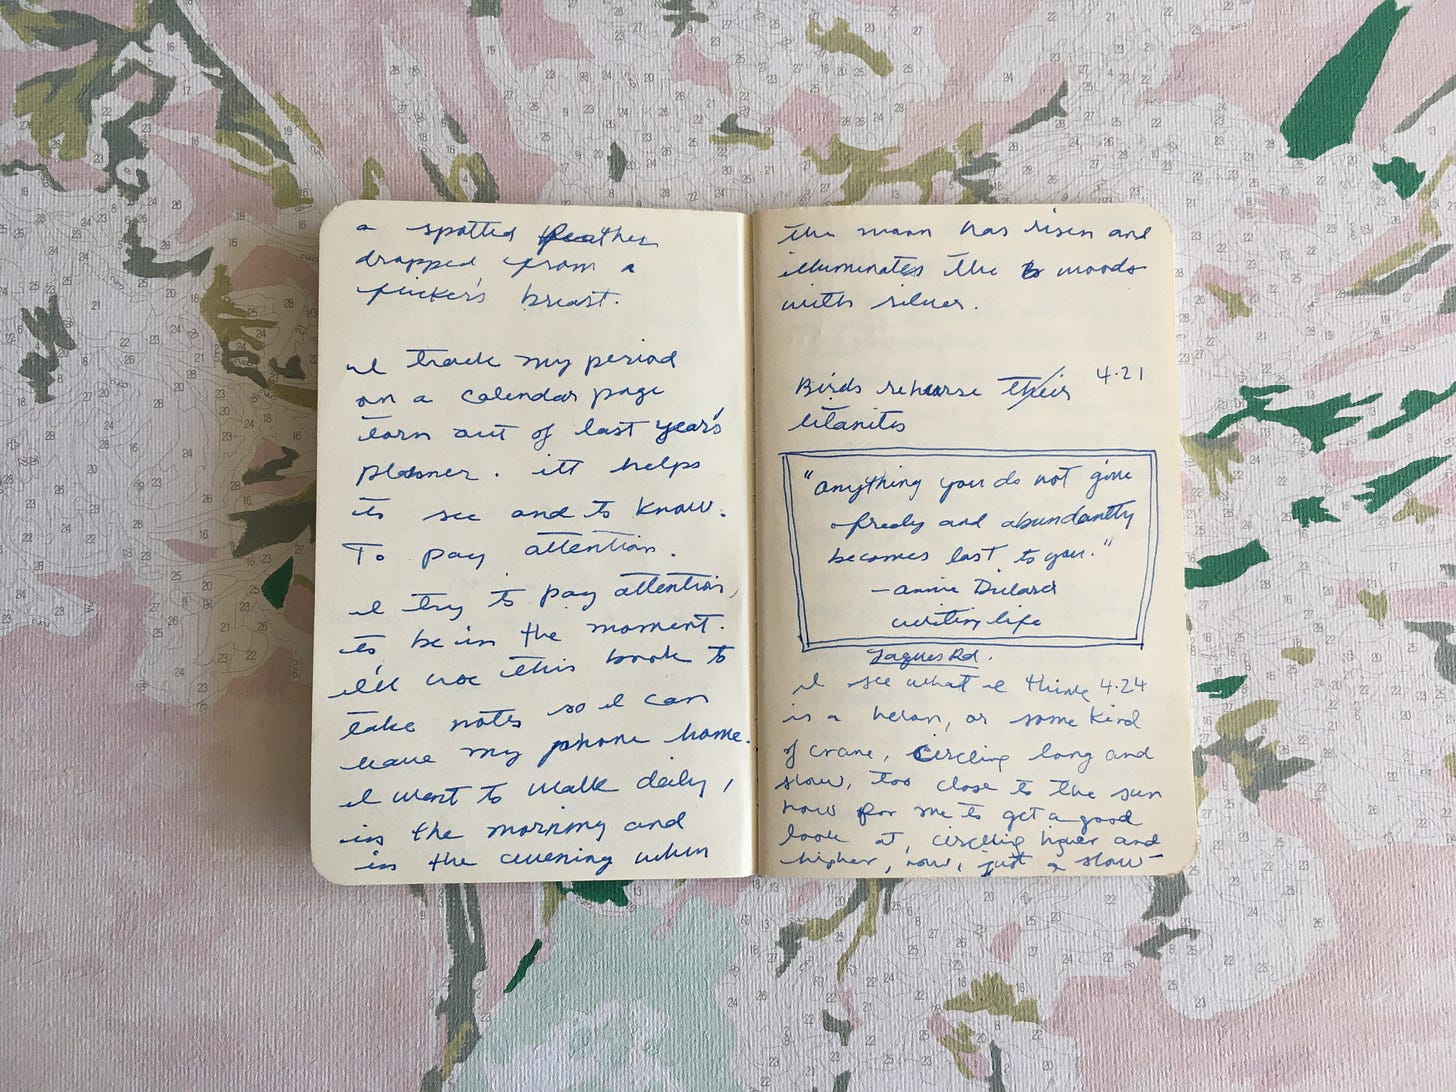 a spotted feather
dropped from a
flicker's breast.
I track my period
on a calendar page
torn out of last year's
planner. itt helps
to see and to know.
To pay attention.
I try to pay attention,
to be in the moment.
I'll use this book to
take notes so I can
leave my phone home.
I want to walk daily,
in the morning and
in the evening when
the moon has risen and
illuminates the woods
with silver.
4.21
Birds rehearse their
litanies
"Anything you do not give
freely and abundantly
becomes lost to you."
- Annie Dillard
writing life
Jaques Rd.
I see what I think 4.24
is a heron, or some kind
of crane, circling long and
slow, too close to the sun
now for me to get a good
look at, circling higher and
higher, now, just a slow-